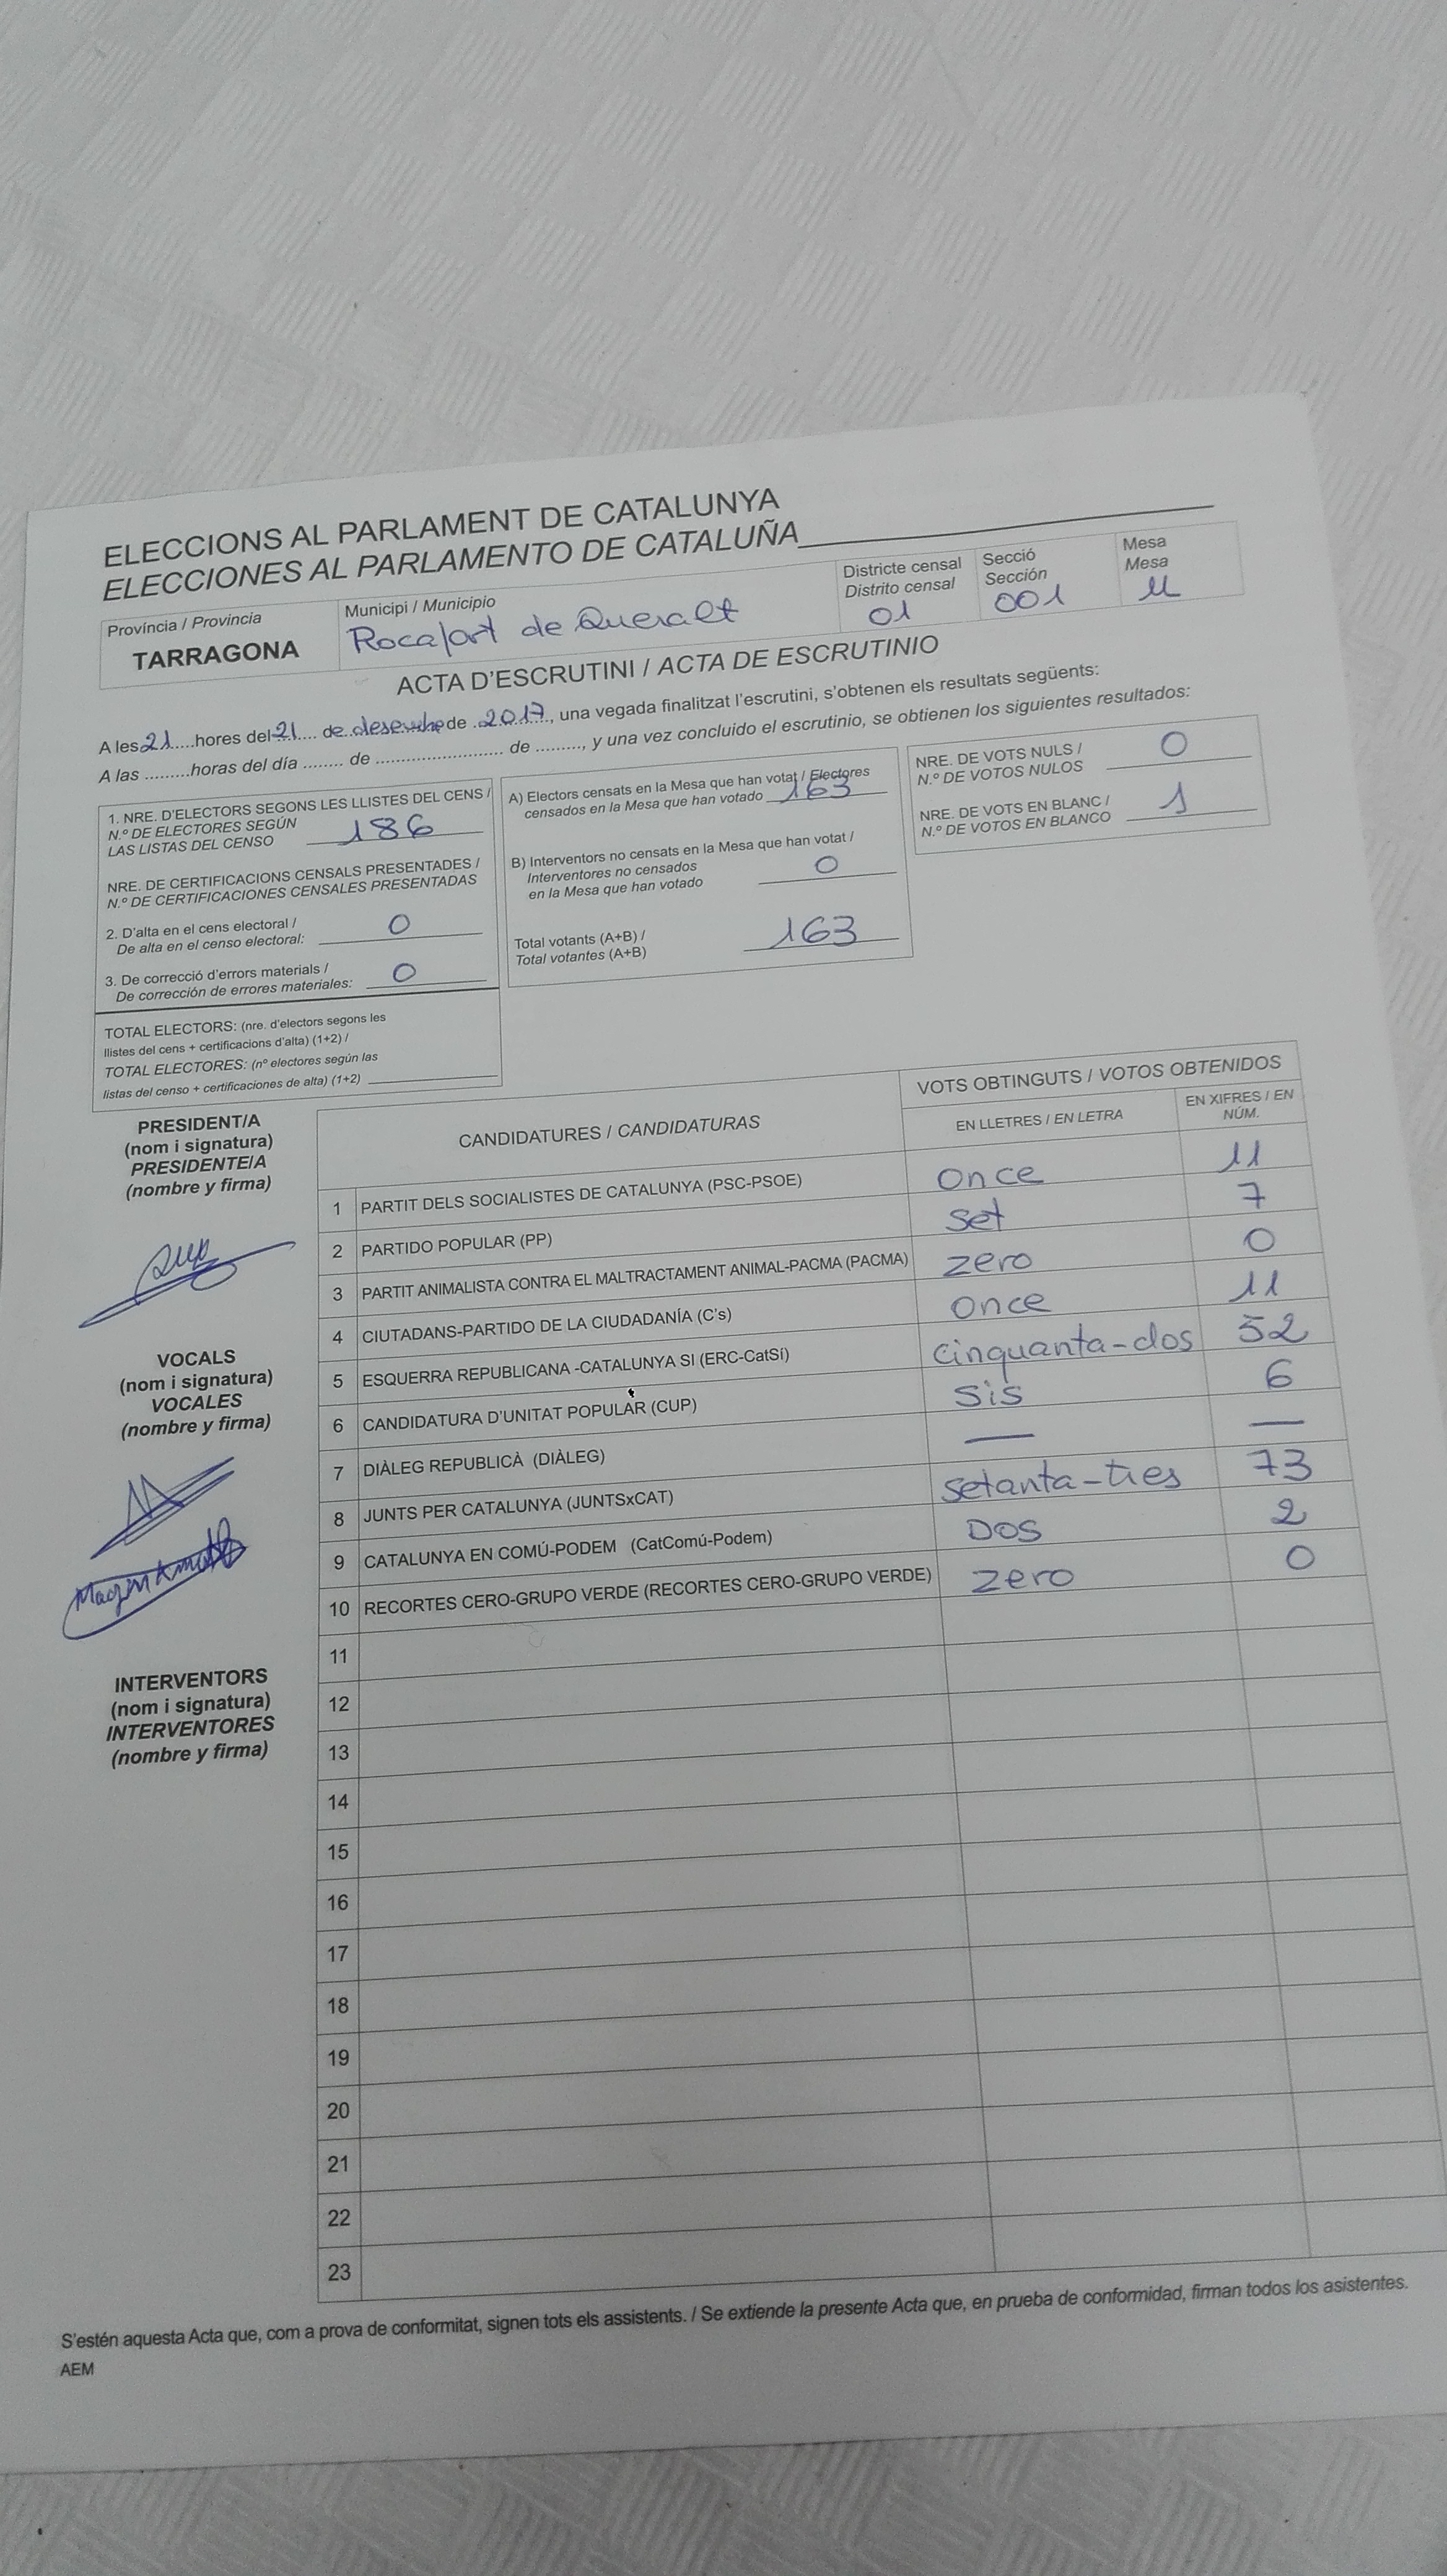 ELECCIONS AL PARLAMENT DE CATALUNYA
ELECCIONES AL PARLAMENTO DE CATALUÑA
Província / Provincia
TARRAGONA
Municipi / Municipio
Rocafort de Queralt
Districte censal
Distrito censal
01
Secció
Sección
001
Mesa
Mesa
U
ACTA D'ESCRUTINI / ACTA DE ESCRUTINIO
A les 21 hores del 21 de desembre de 2017, una vegada finalitzat l'escrutini, s'obtenen els resultats següents:
A las .........horas del día ........ de ......................... de ........., y una vez concluido el escrutinio, se obtienen los siguientes resultados:
1. NRE. D'ELECTORS SEGONS LES LLISTES DEL CENS /
N.º DE ELECTORES SEGÚN
LAS LISTAS DEL CENSO 186
NRE. DE CERTIFICACIONS CENSALS PRESENTADES /
N.º DE CERTIFICACIONES CENSALES PRESENTADAS
2. D'alta en el cens electoral /
De alta en el censo electoral: 0
3. De correcció d'errors materials /
De corrección de errores materiales: 0
TOTAL ELECTORS: (nre. d'electors segons les
llistes del cens + certificacions d'alta) (1+2) /
TOTAL ELECTORES: (nº electores según las
listas del censo + certificaciones de alta) (1+2)
A) Electors censats en la Mesa que han votat / Electores
censados en la Mesa que han votado 163
B) Interventors no censats en la Mesa que han votat /
Interventores no censados
en la Mesa que han votado 0
Total votants (A+B) /
Total votantes (A+B) 163
NRE. DE VOTS NULS /
N.º DE VOTOS NULOS 0
NRE. DE VOTS EN BLANC /
N.º DE VOTOS EN BLANCO 1
PRESIDENT/A
(nom i signatura)
PRESIDENTE/A
(nombre y firma)
VOCALS
(nom i signatura)
VOCALES
(nombre y firma)
INTERVENTORS
(nom i signatura)
INTERVENTORES
(nombre y firma)
CANDIDATURES / CANDIDATURAS
VOTS OBTINGUTS / VOTOS OBTENIDOS
EN LLETRES / EN LETRA
EN XIFRES / EN
NÚM.
1 PARTIT DELS SOCIALISTES DE CATALUNYA (PSC-PSOE) Once 11
2 PARTIDO POPULAR (PP) Set 7
3 PARTIT ANIMALISTA CONTRA EL MALTRACTAMENT ANIMAL-PACMA (PACMA) zero 0
4 CIUTADANS-PARTIDO DE LA CIUDADANÍA (C's) Once 11
5 ESQUERRA REPUBLICANA -CATALUNYA SI (ERC-CatSí) Cinquanta-dos 52
6 CANDIDATURA D'UNITAT POPULAR (CUP) Sis 6
7 DIÀLEG REPUBLICÀ (DIÀLEG) — —
8 JUNTS PER CATALUNYA (JUNTSxCAT) Setanta-tres 73
9 CATALUNYA EN COMÚ-PODEM (CatComú-Podem) DOS 2
10 RECORTES CERO-GRUPO VERDE (RECORTES CERO-GRUPO VERDE) zero 0
11
12
13
14
15
16
17
18
19
20
21
22
23
S'estén aquesta Acta que, com a prova de conformitat, signen tots els assistents. / Se extiende la presente Acta que, en prueba de conformidad, firman todos los asistentes.
AEM